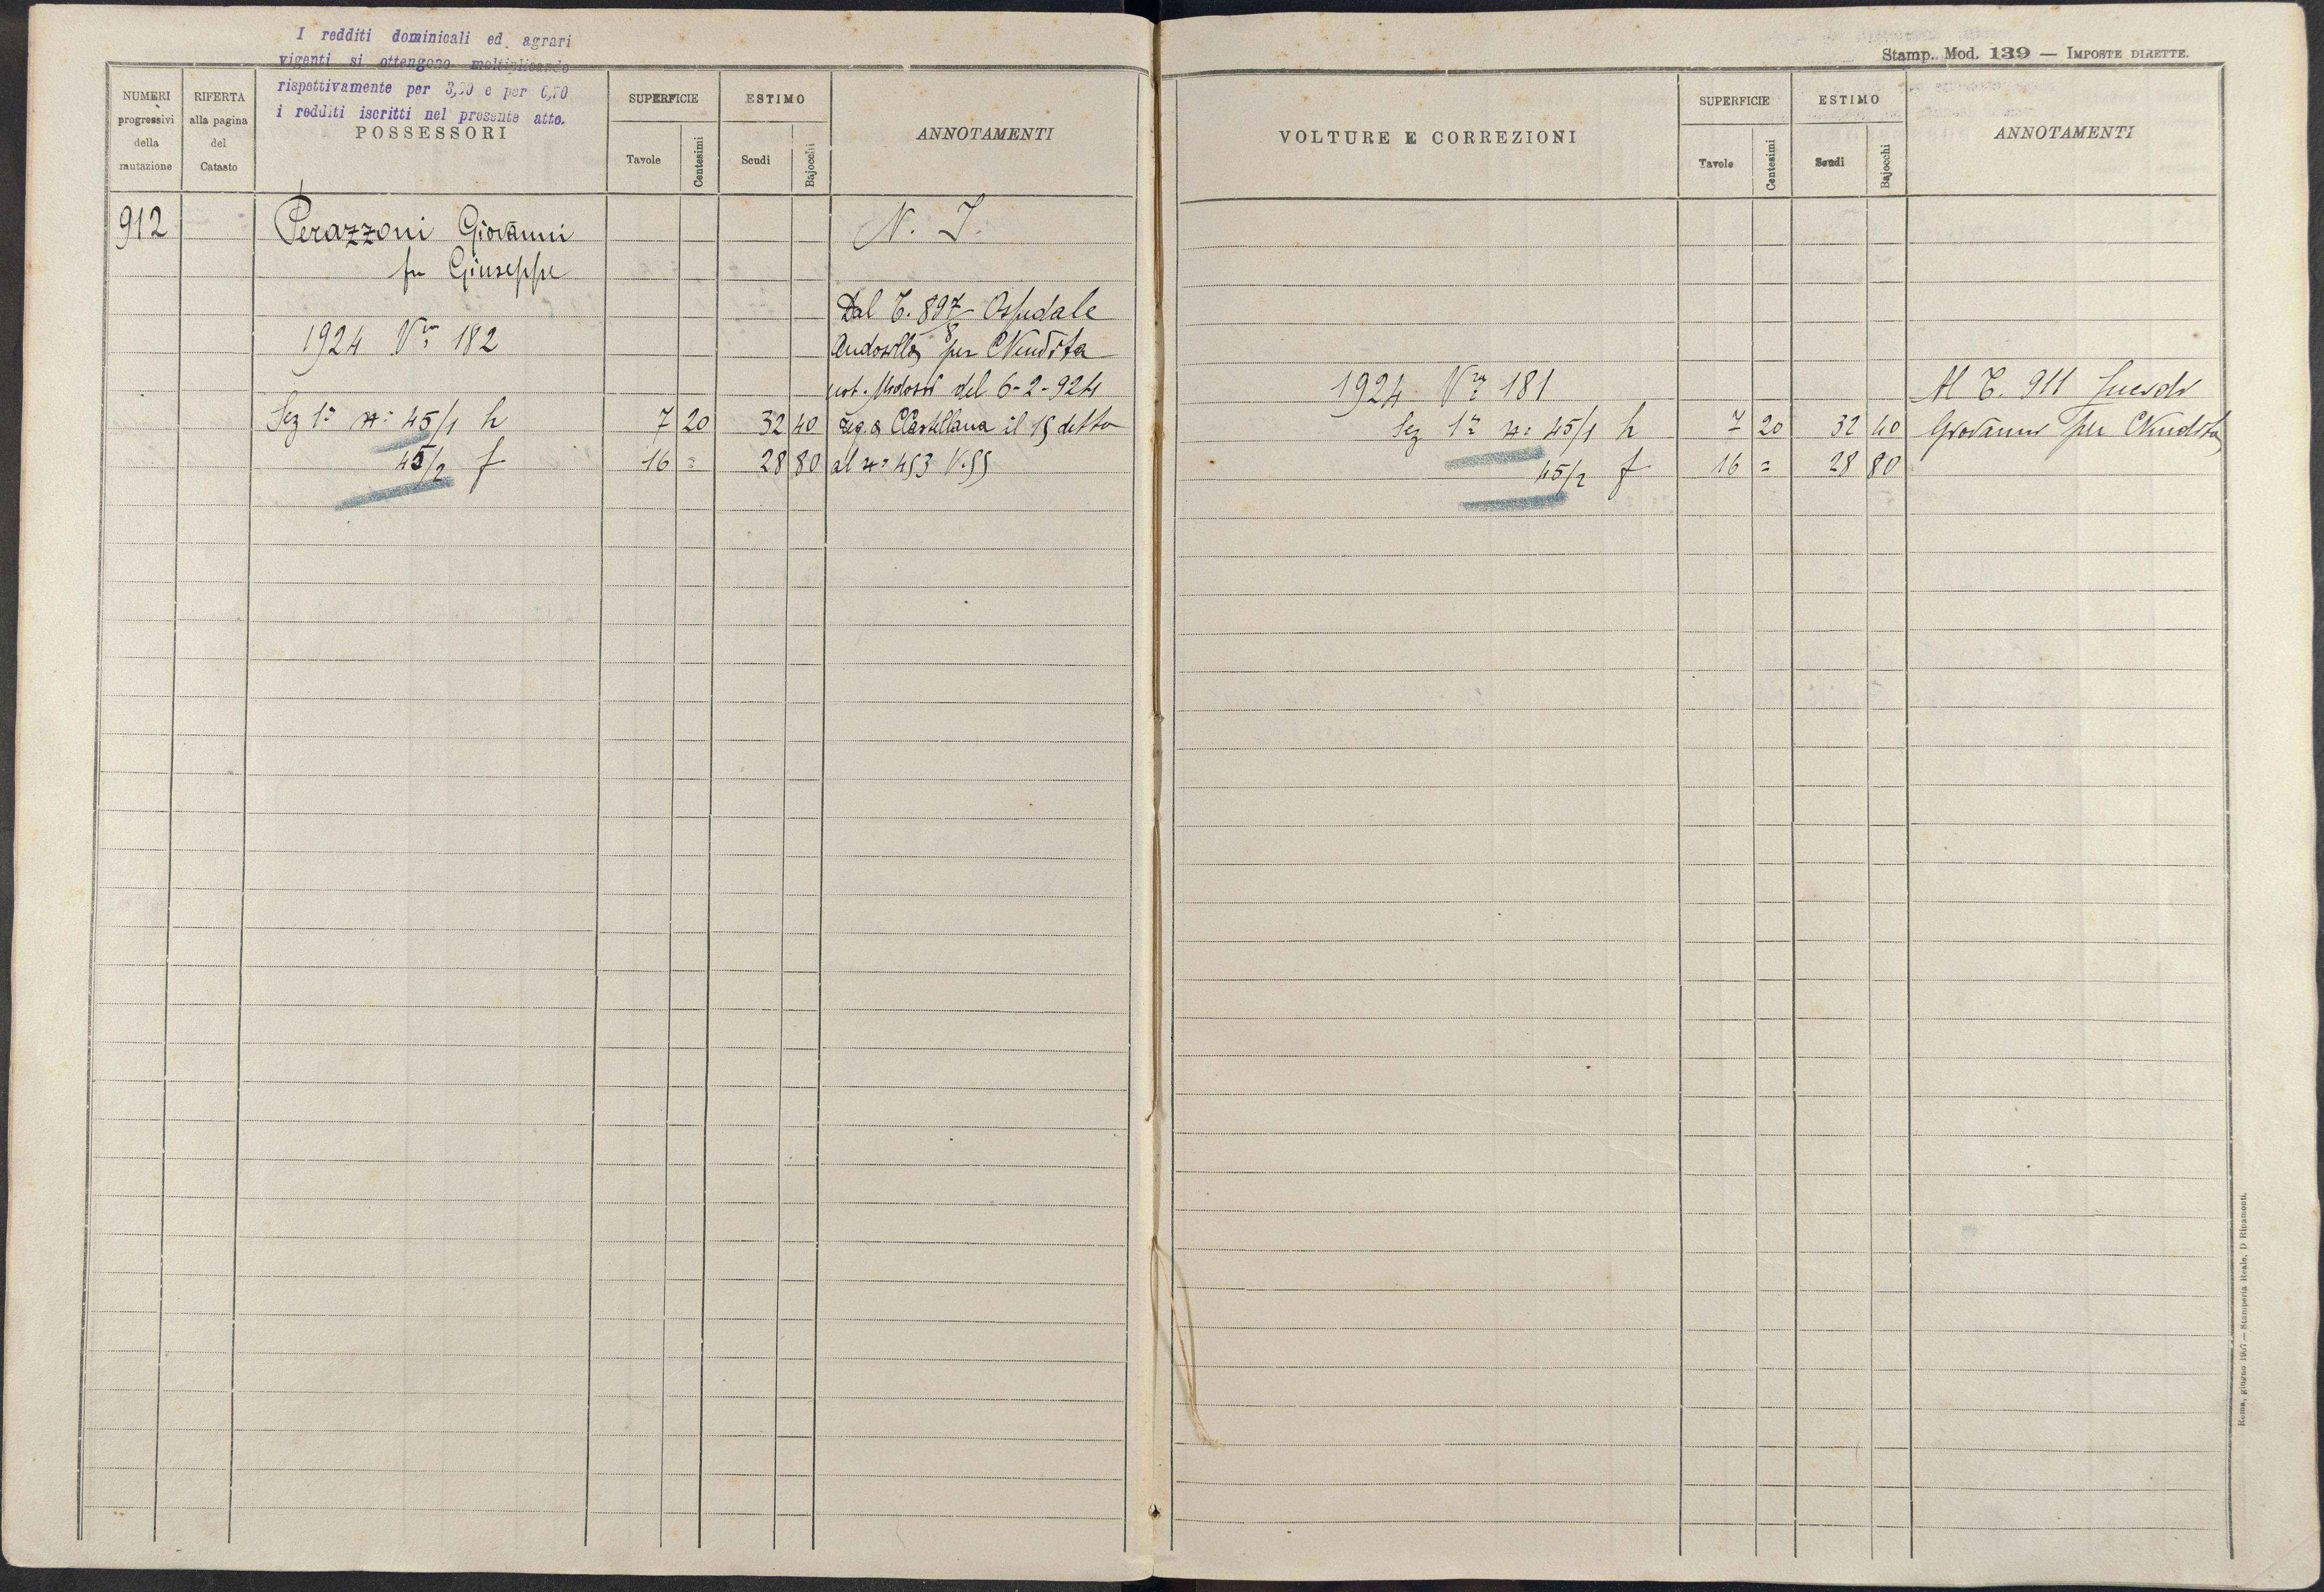 I redditi dominicali ed agrari
vigenti si ottengono moltiplicando
rispettivamente per 3,20 e per 6,70
i redditi iscritti nel presente atto.
NUMERI
progressivi
della
mutazione
RIFERTA
alla pagina
del
Catasto
POSSESSORI
SUPERFICIE
Tavole
Centesimi
ESTIMO
Scudi
Bajocchi
ANNOTAMENTI
912 Perazzoni Giovanni N. I.
fu Giuseppe
Dal C. 897 Ospedale
1924 Vra 182 per Vendita
not. del 6-2-924
Sez 1a n: 45/1 h 7 20 32 40 reg. a CCastellana il 15 detto
45/2 f 16 = 28 80 al n: 453 V. 55
Stamp. Mod. 139 — IMPOSTE DIRETTE.
VOLTURE E CORREZIONI
SUPERFICIE
Tavole
Centesimi
ESTIMO
Scudi
Bajocchi
ANNOTAMENTI
1924 Vra 181 Al C. 911
Sez 1a n: 45/1 h 7 20 32 40 Giovanni per Vendita
45/2 f 16 = 28 80
Roma, giugno 1907 — Stamperia Reale, D Ripamonti.